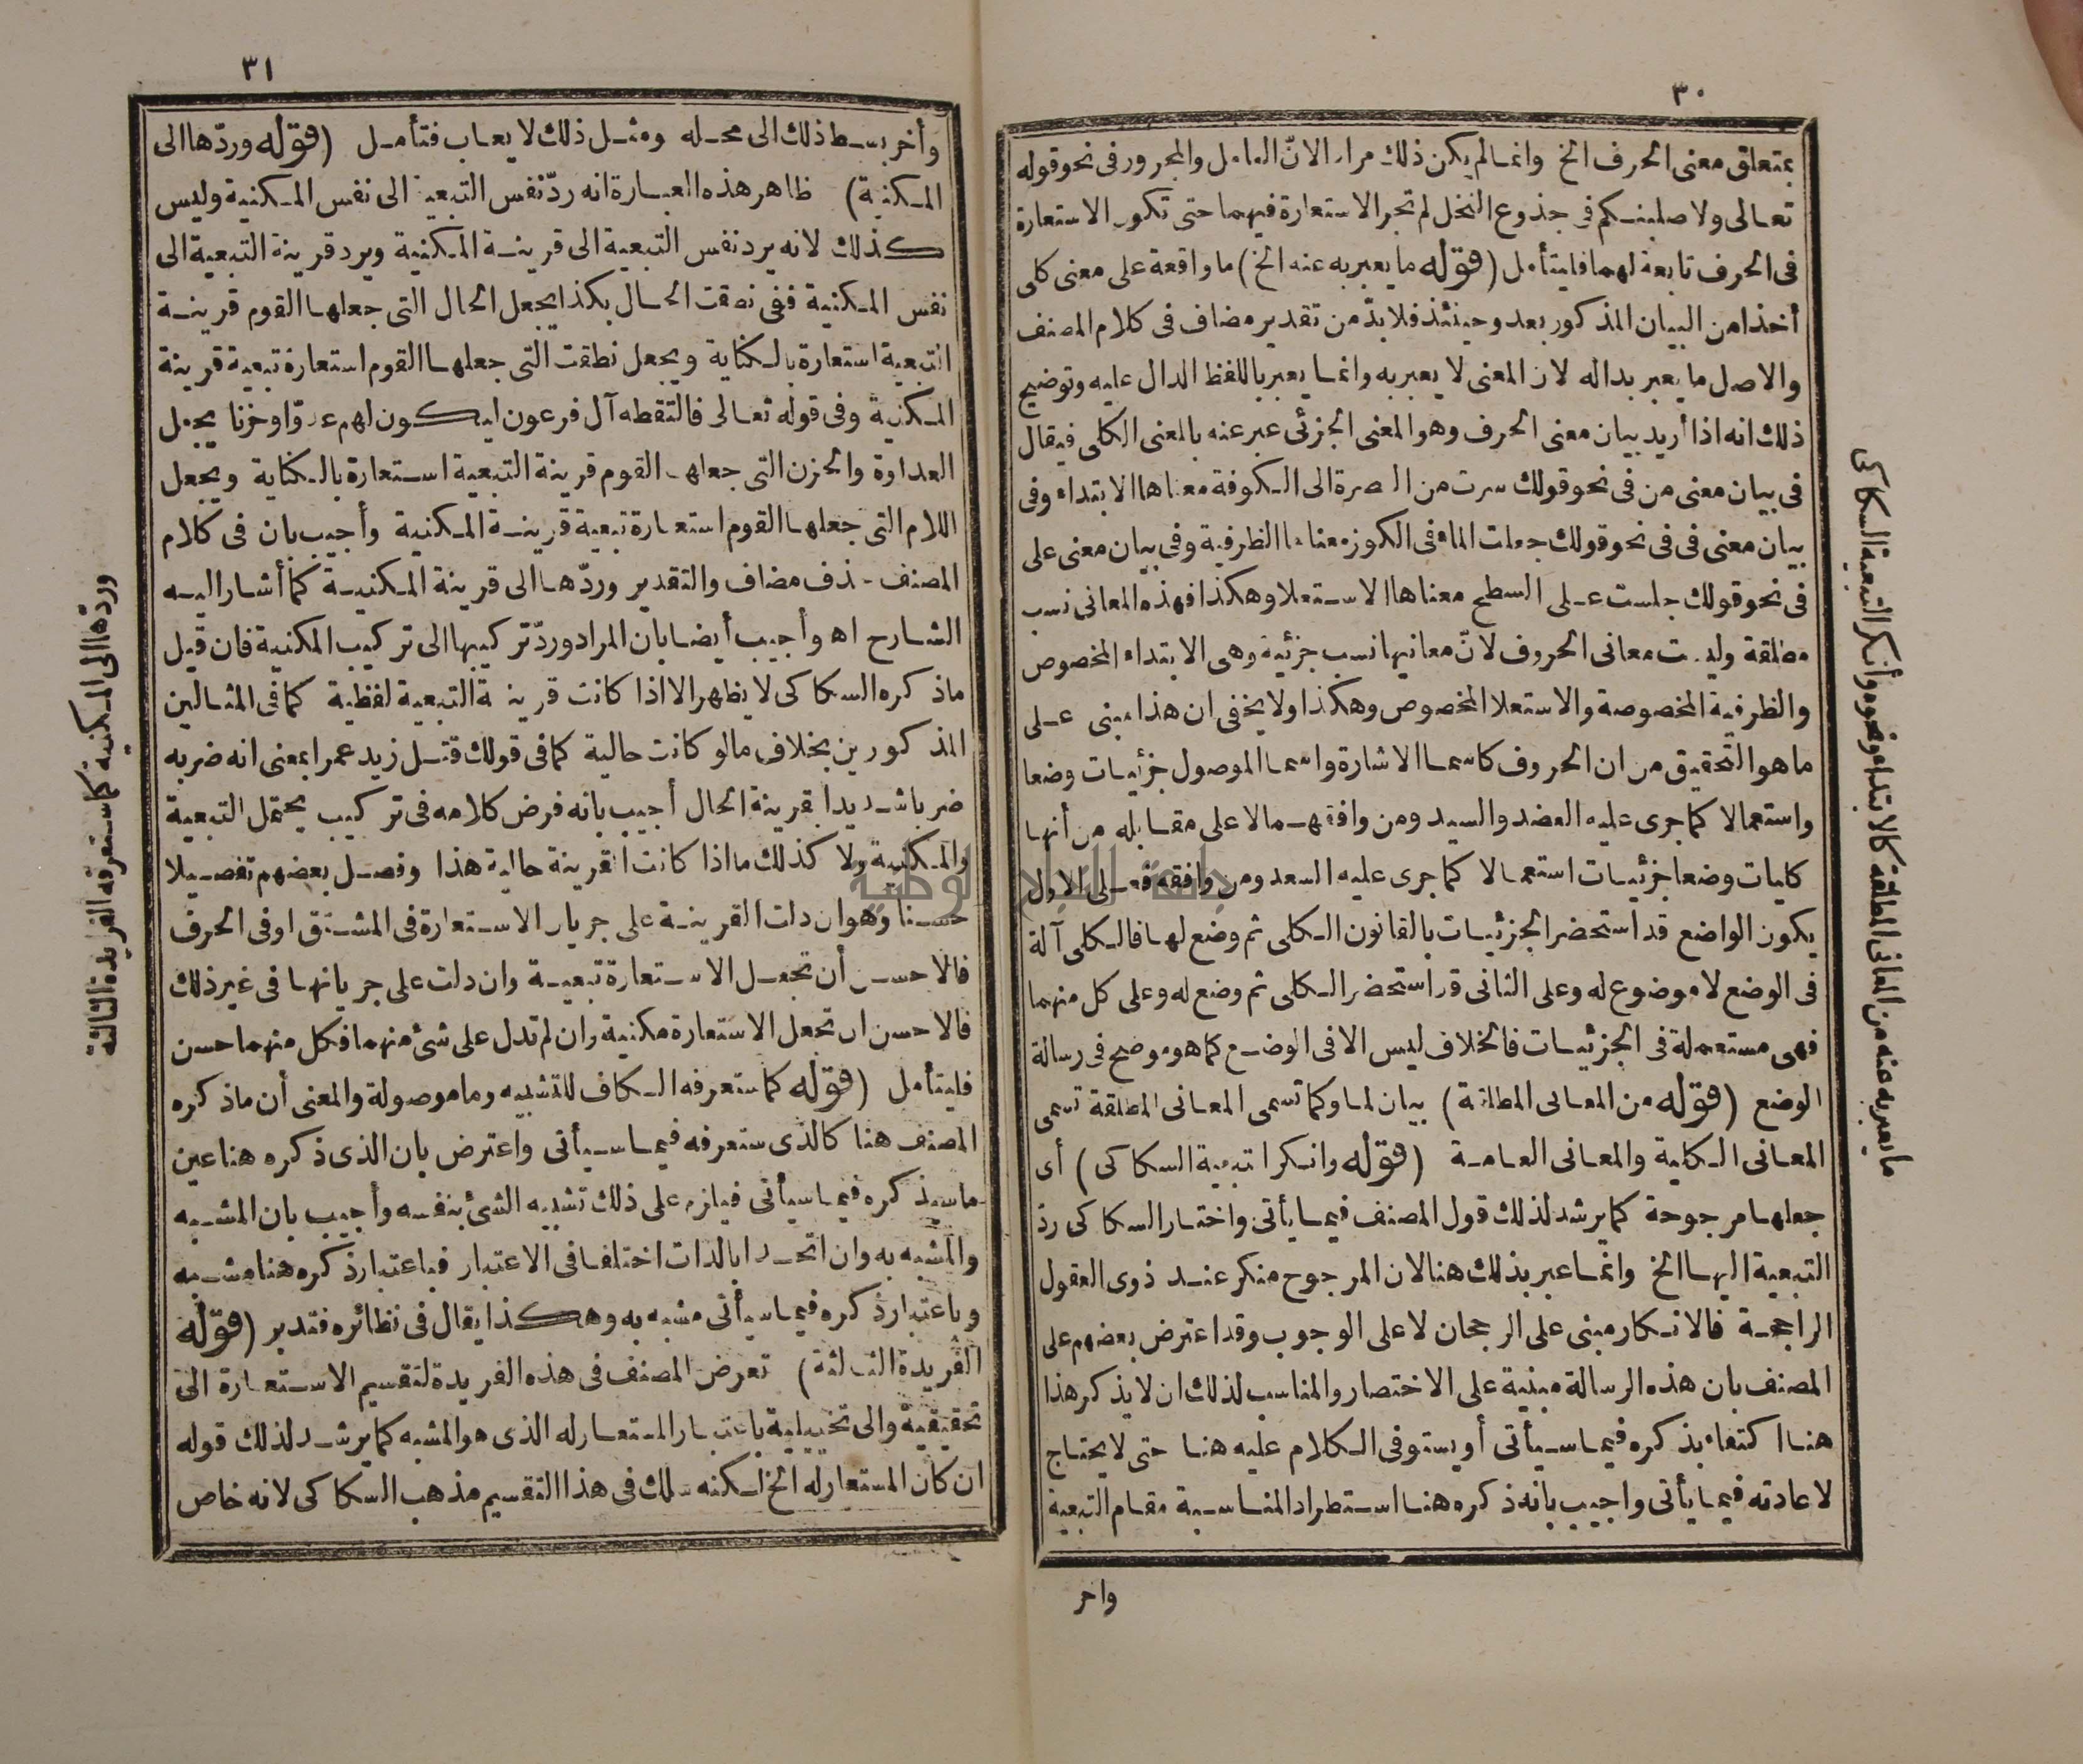 ٣٠
بمتعلق معنى الحرف الخ وانما لم يكن ذلك مرادا لانّ العامل والمجرور فى نحو قوله
تعالى ولا صلبنكم فى جذوع النخل لم تجر الاستعارة فيهما حتى تكون الاستعارة
فى الحرف تابعة لهما فليتأمل (قوله ما يعبر به عنه الخ) ما واقعة على معنى كلى
أخذا من البيان المذكور بعد وحينئذ فلا بدّ من تقدير مضاف فى كلام المصنف
والاصل ما يعبر بداله لان المعنى لا يعبر به وانما يعبر باللفظ الدال عليه وتوضيح
ذلك انه اذا أريد بيان معنى الحرف وهو المعنى الجزئى عبر عنه بالمعنى الكلى فيقال
فى بيان معنى من فى نحو قولك سرت من البصرة الى الكوفة معناها الابتداء وفى
بيان معنى فى فى نحو قولك جعلت الماء فى الكوز معناها الظرفية وفى بيان معنى على
فى نحو قولك جلست على السطح معناها الاستعلا وهكذا فهذه المعانى نسب
مطلقة وليست معانى الحروف لانّ معانيها نسب جزئية وهى الابتداء المخصوص
والظرفية المخصوصة والاستعلا المخصوص وهكذا ولا يخفى ان هذا مبنى على
ما هو التحقيق من ان الحروف كاسما الاشارة واسما الموصول جزئيات وضعا
واستعمالا كما جرى عليه العضد والسيد ومن وافقهما لا على مقابله من أنها
كليات وضعا جزئيات استعمالا كما جرى عليه السعد ومن وافقه فعلى الاول
يكون الواضع قد استحضر الجزئيات بالقانون الكلى ثم وضع لها فالكلى آلة
فى الوضع لا موضوع له وعلى الثانى قد استحضر الكلى ثم وضع له وعلى كل منهما
فهى مستعملة فى الجزئيات فالخلاف ليس الا فى الوضع كما هو موضح فى رسالة
الوضع (قوله من المعانى المطلقة) بيان لما وكما تسمى المعانى المطلقة تسمى
المعانى الكلية والمعانى العامة (قوله وانكر تبعية السكاكى) أى
جعلها مرجوحة كما يرشد لذلك قول المصنف فيما يأتى واختار السكاكى ردّ
التبعية اليها الخ وانما عبر بذلك هنا لان المرجوح منكر عند ذوى العقول
الراجحة فالانكار مبنى على الرجحان لا على الوجوب وقد اعترض بعضهم على
المصنف بان هذه الرسالة مبنية على الاختصار والمناسب لذلك ان لا يذكر هذا
هنا اكتفاء بذكره فيما سيأتى أو يستوفى الكلام عليه هنا حتى لا يحتاج
لاعادته فيما يأتى واجيب بانه ذكره هنا استطرادا لمناسبة مقام التبعية
واخر
ما يعبر به عنه من المعانى المطلقة كالابتداء ونحوه وأنكر التبعية السكاكى
٣١
وأخر بسط ذلك الى محله ومثل ذلك لا يعاب فتأمل (قوله وردّها الى
المكنية) ظاهر هذه العبارة انه ردّ نفس التبعية الى نفس المكنية وليس
كذلك لانه يرد نفس التبعية الى قرينة المكنية ويرد قرينة التبعية الى
نفس المكنية ففى نطقت الحال بكذا يجعل الحال التى جعلها القوم قرينة
التبعية استعارة بالكناية ويجعل نطقت التى جعلها القوم استعارة تبعية قرينة
المكنية وفى قوله تعالى فالتقطه آل فرعون ليكون لهم عدوّا وحزنا يجعل
العداوة والحزن التى جعلها القوم قرينة التبعية استعارة بالكناية ويجعل
اللام التى جعلها القوم استعارة تبعية قرينة المكنية وأجيب بان فى كلام
المصنف حذف مضاف والتقدير وردّها الى قرينة المكنية كما أشار اليه
الشارح اه وأجيب أيضا بان المراد وردّ تركيبها الى تركيب المكنية فان قيل
ما ذكره السكاكى لا يظهر الا اذا كانت قرينة التبعية لفظية كما فى المثالين
المذكورين بخلاف ما لو كانت حالية كما فى قولك قتل زيد عمرا بمعنى انه ضربه
ضربا شديدا بقرينة الحال أجيب بانه فرض كلامه فى تركيب يحتمل التبعية
والمكنية ولا كذلك ما اذا كانت القرينة حالية هذا وفصل بعضهم تفصيلا
حسنا وهو ان دلت القرينة على جريان الاستعارة فى المشتق او فى الحرف
فالاحسن أن تجعل الاستعارة تبعية وان دلت على جريانها فى غير ذلك
فالاحسن ان تجعل الاستعارة مكنية وان لم تدل على شئ منهما فكل منهما حسن
فليتأمل (قوله كما ستعرفه الكاف للتشبيه وما موصولة والمعنى أن ما ذكره
المصنف هنا كالذى ستعرفه فيما سيأتى واعترض بان الذى ذكره هنا عين
ما سيذكره فيما سيأتى فيلزم على ذلك تشبيه الشئ بنفسه وأجيب بان المشبه
والمشبه به وان اتحدا بالذات اختلفا فى الاعتبار فباعتبار ذكره هنا مشبه
وباعتبار ذكره فيما سيأتى مشبه به وهكذا يقال فى نظائره فتدبر (قوله
الفريدة الثالثة) تعرض المصنف فى هذه الفريدة لتقسيم الاستعارة الى
تحقيقية والى تخييلية باعتبار المستعار له الذى هو المشبه كما يرشد لذلك قوله
ان كان المستعار له الخ لكنه سلك فى هذا التقسيم مذهب السكاكى لانه خاص
وردّها الى المكنية كما ستعرفه الفريدة الثالثة